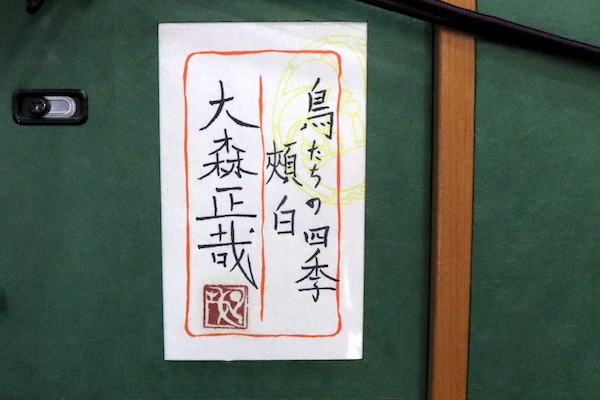 鳥たちの四季
頰白
大森正哉